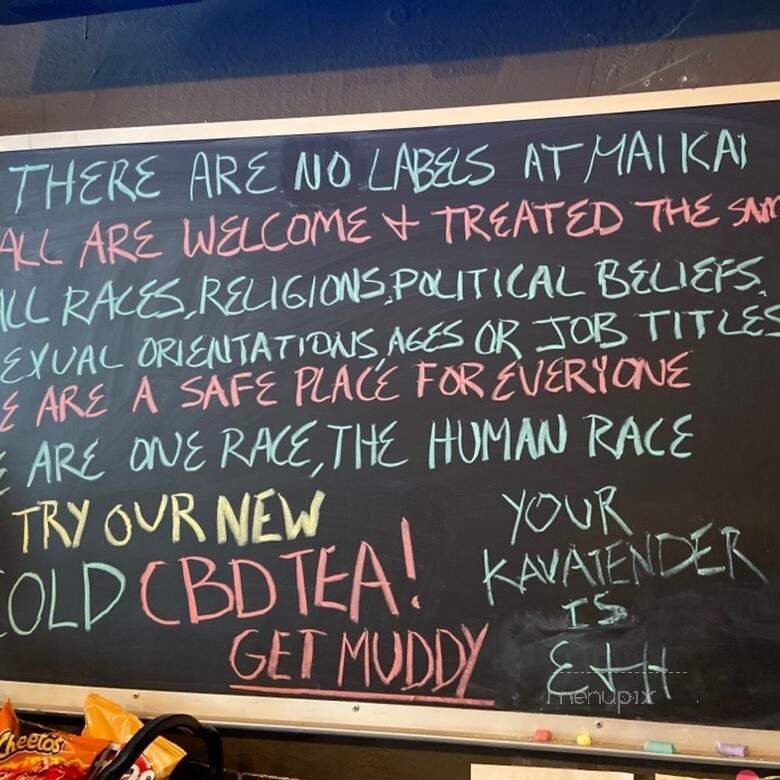 THERE ARE NO LABELS AT MAI KAI
ALL ARE WELCOME + TREATED THE SAM
ALL RACES, RELIGIONS, POLITICAL BELIEFS,
EXUAL ORIENTATIONS, AGES OR JOB TITLES
E ARE A SAFE PLACE FOR EVERYONE
E ARE ONE RACE, THE HUMAN RACE
TRY OUR NEW
COLD CBD TEA!
GET MUDDY
YOUR
KAVATENDER
IS
menupix
Cheetos